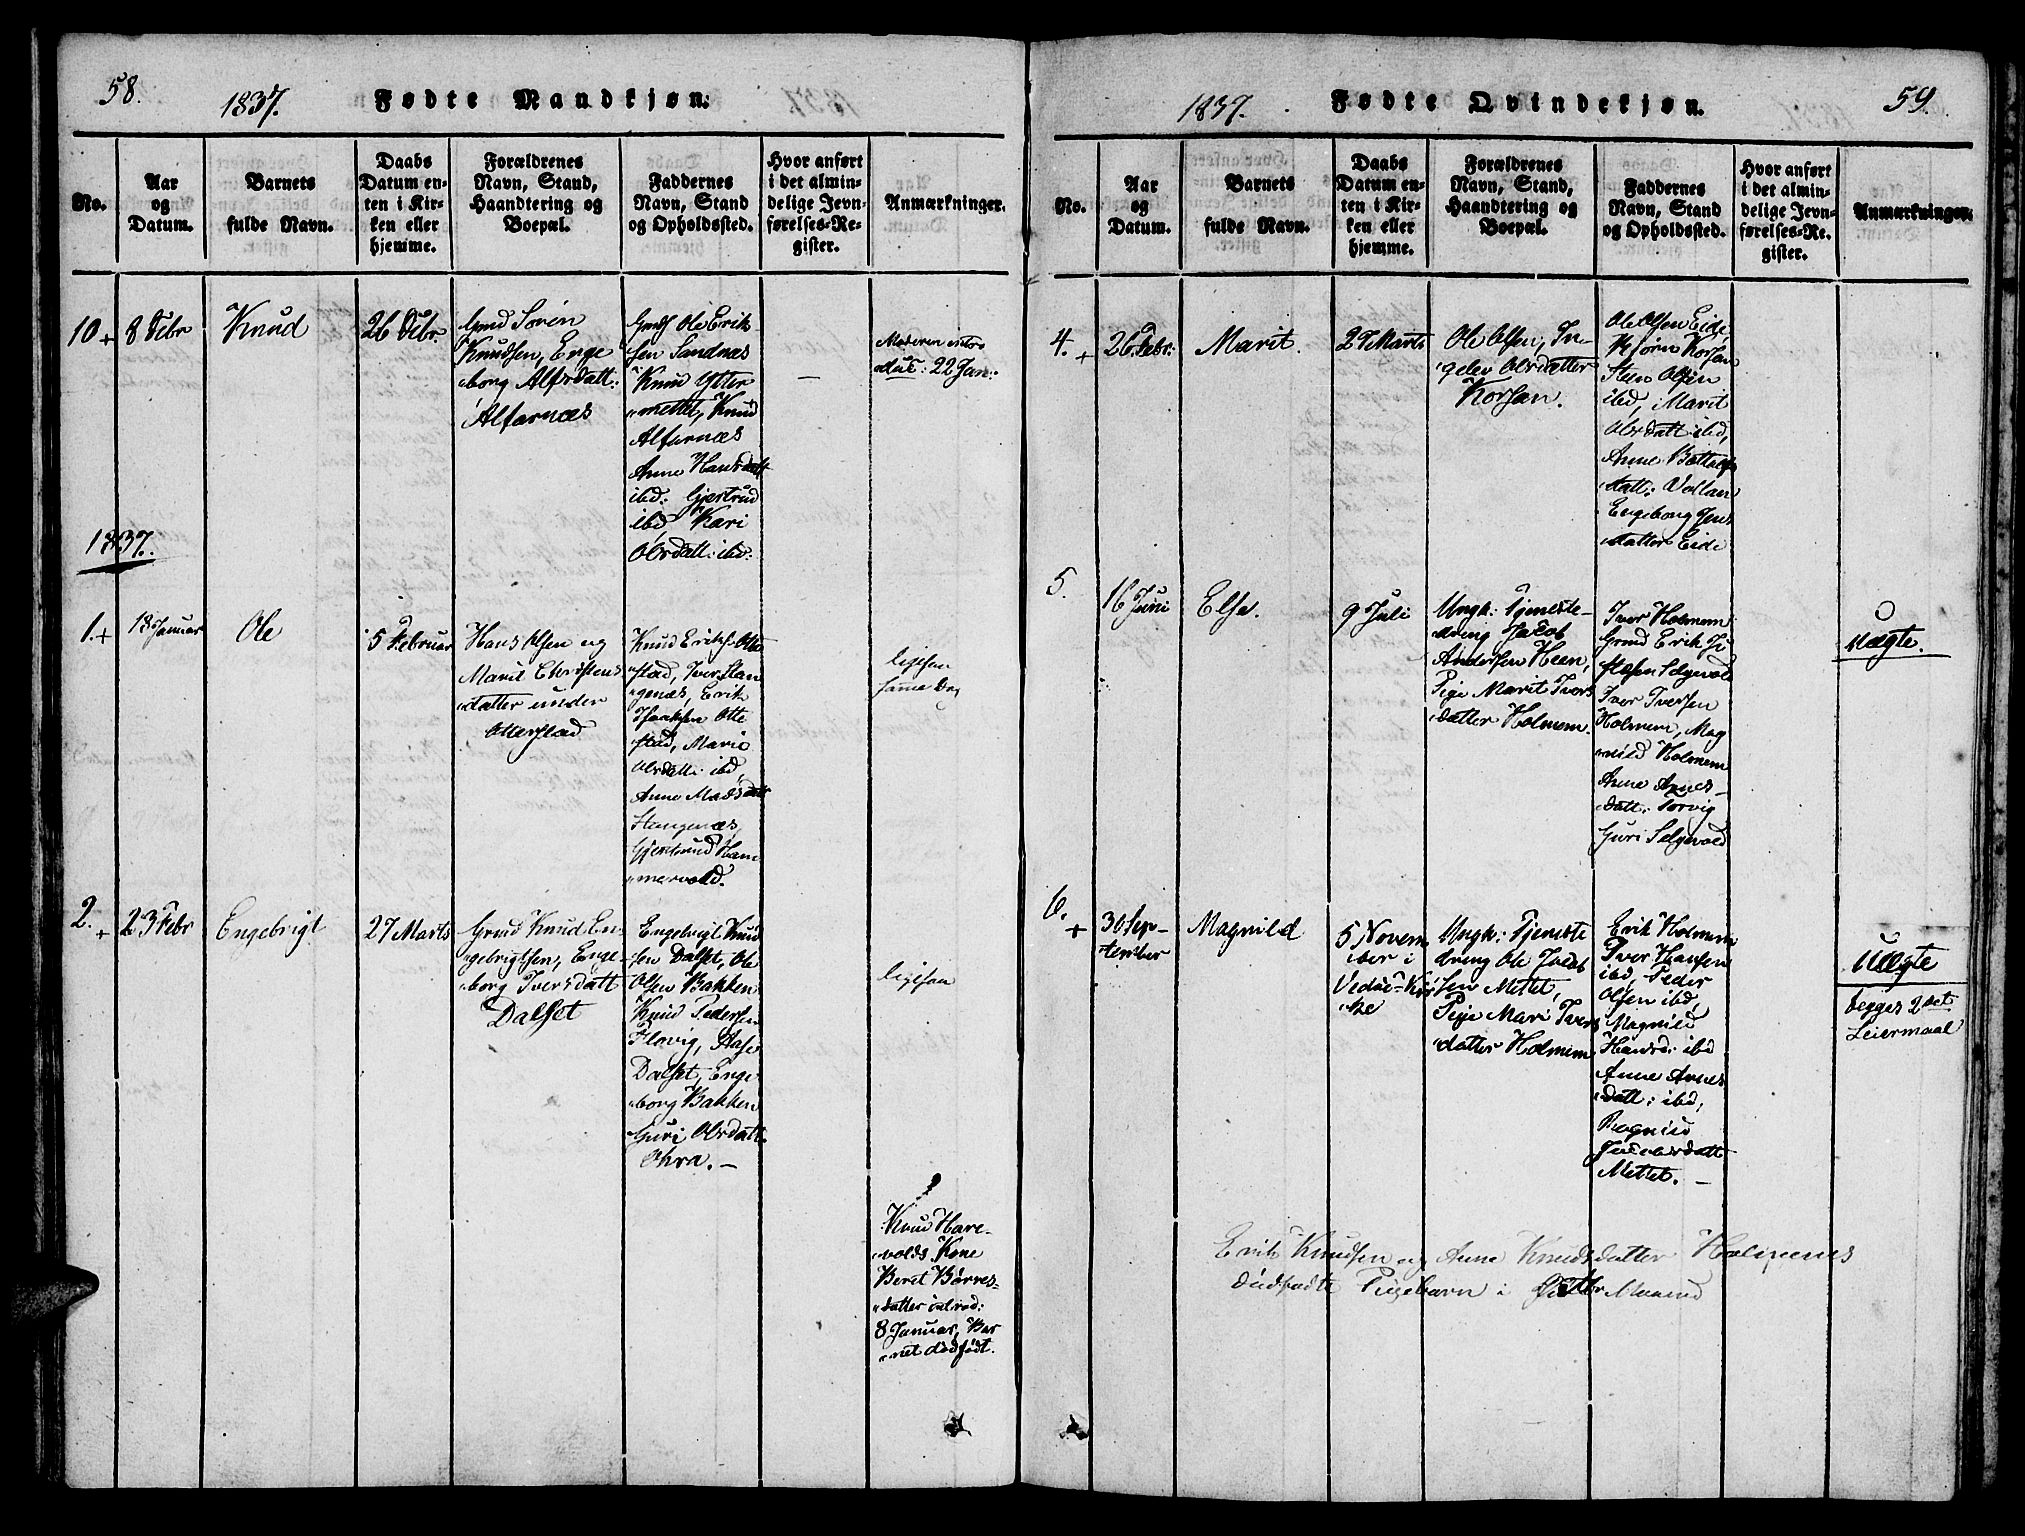 58.
1837. Fødte Mandkjøn.
No.
Aar
og
Datum.
Barnets
fulde Navn.
Daabs
Datum en-
ten i Kir-
ken eller
hjemme.
Forældrenes
Navn, Stand,
Haandtering og
Boepæl.
Faddernes
Navn, Stand
og Opholdssted.
Hvor anført
i det almin-
delige Jevn-
førelses-Re-
gister.
Anmærkninger.
10 +
8 Febr
Knud
26 Febr.
Gmd Søren
Knudsen, Enge
borg Alfsdatt:
Alfarnæs
Gmdf Ole Erik-
sen Sandnæs
Knud Ytter
mettet, Knud
Alfarnæs
Anne Hansdatt
ibd: Gjertrud
ibd Kari
Olsdatt: ibd:
—
Moderen intro
duc: 22 Jan:
1837.
1. +
18 Januar
Ole
5 Februar
Hans Olsen og
Marit Christens
datter under
Otterstad
Knud Eriks: Otte
stad, Iver Stan
genæs, Erik
Isaaksen Otte
stad, Marie
Olsdatt: ibd,
Anne Madsdatt
Stangenæs,
Gjertrud Ham
mervold.
ligesaa
samme Dag
2. +
23 Febr
Engebrigt
27 Marts
Gmd Knud En
gebrigtsen, Enge-
borg Iversdatt
Dalset
Engebrigt Knud
sen Dalset, Ole
Olsen Bakken
Knud Pedersen
Flovig, Aase
Dalset, Enge
borg Bakken
Guri Olsdatt.
Okra. —
ligesaa
Knud Hare-
volds Kone
Beret Børres-
datter introd:
8 Januar, Bar
net dødfødt.
59.
1837. Fødte Qvindekjøn.
No.
Aar
og
Datum.
Barnets
fulde Navn.
Daabs
Datum en-
ten i Kir-
ken eller
hjemme.
Forældrenes
Navn, Stand,
Haandtering og
Boepæl.
Faddernes
Navn, Stand
og Opholdssted.
Hvor anført
i det almin-
delige Jevn-
førelses-Re-
gister.
Anmærkninger.
4. +
26 Febr:
Marit.
27 Marts
Ole Olsen, In-
gelev Olsdatter
Korsan.
Ole Olsen Eide,
Bejørn Korsan
Steen Olsen
ibd, Marit
Olsdatt: ibd,
Anne Bottolfs
datt: Vollan
Engeborg Jens
datter Eide
5.
16 Juni
Else.
9 Juli
Ungk: Tjeneste-
dreng Jacob
Andersen Heen,
Pige Marit Ivers
datter Holmem.
Iver Holmem
Gmd Erik
Selgevold
Iver Iversen
Holmem, Mag
nild Holmem
Anne Arnes-
datt: Torvig
Guri Selgevold
Uægte.
6. +
30 Sep-
tember
Magnild
5 Novem
ber i
Vedøe-Kir
ke
Ungk: Tjeneste
dreng Ole Jacob
sen Mettet,
Pige Mari Ivers
datter Holmem
Erik Holmem
Iver Hansen
ibd, Peder
Olsen ibd
Magnild
Hansd: ibd
Anne Arnes
datt: ibd,
Ragnild
Jacobsdatt
Mettet. —
Uægte
begges 2det
Leiermaal
Erik Knudsen og Anne Knudsdatter Holmems
dødfødte Pigebarn i Maaned